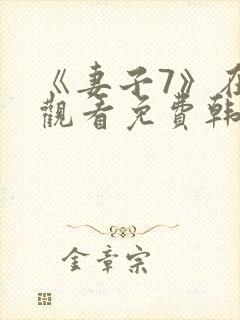 《妻子7》在
觀看免費韩
金章宗